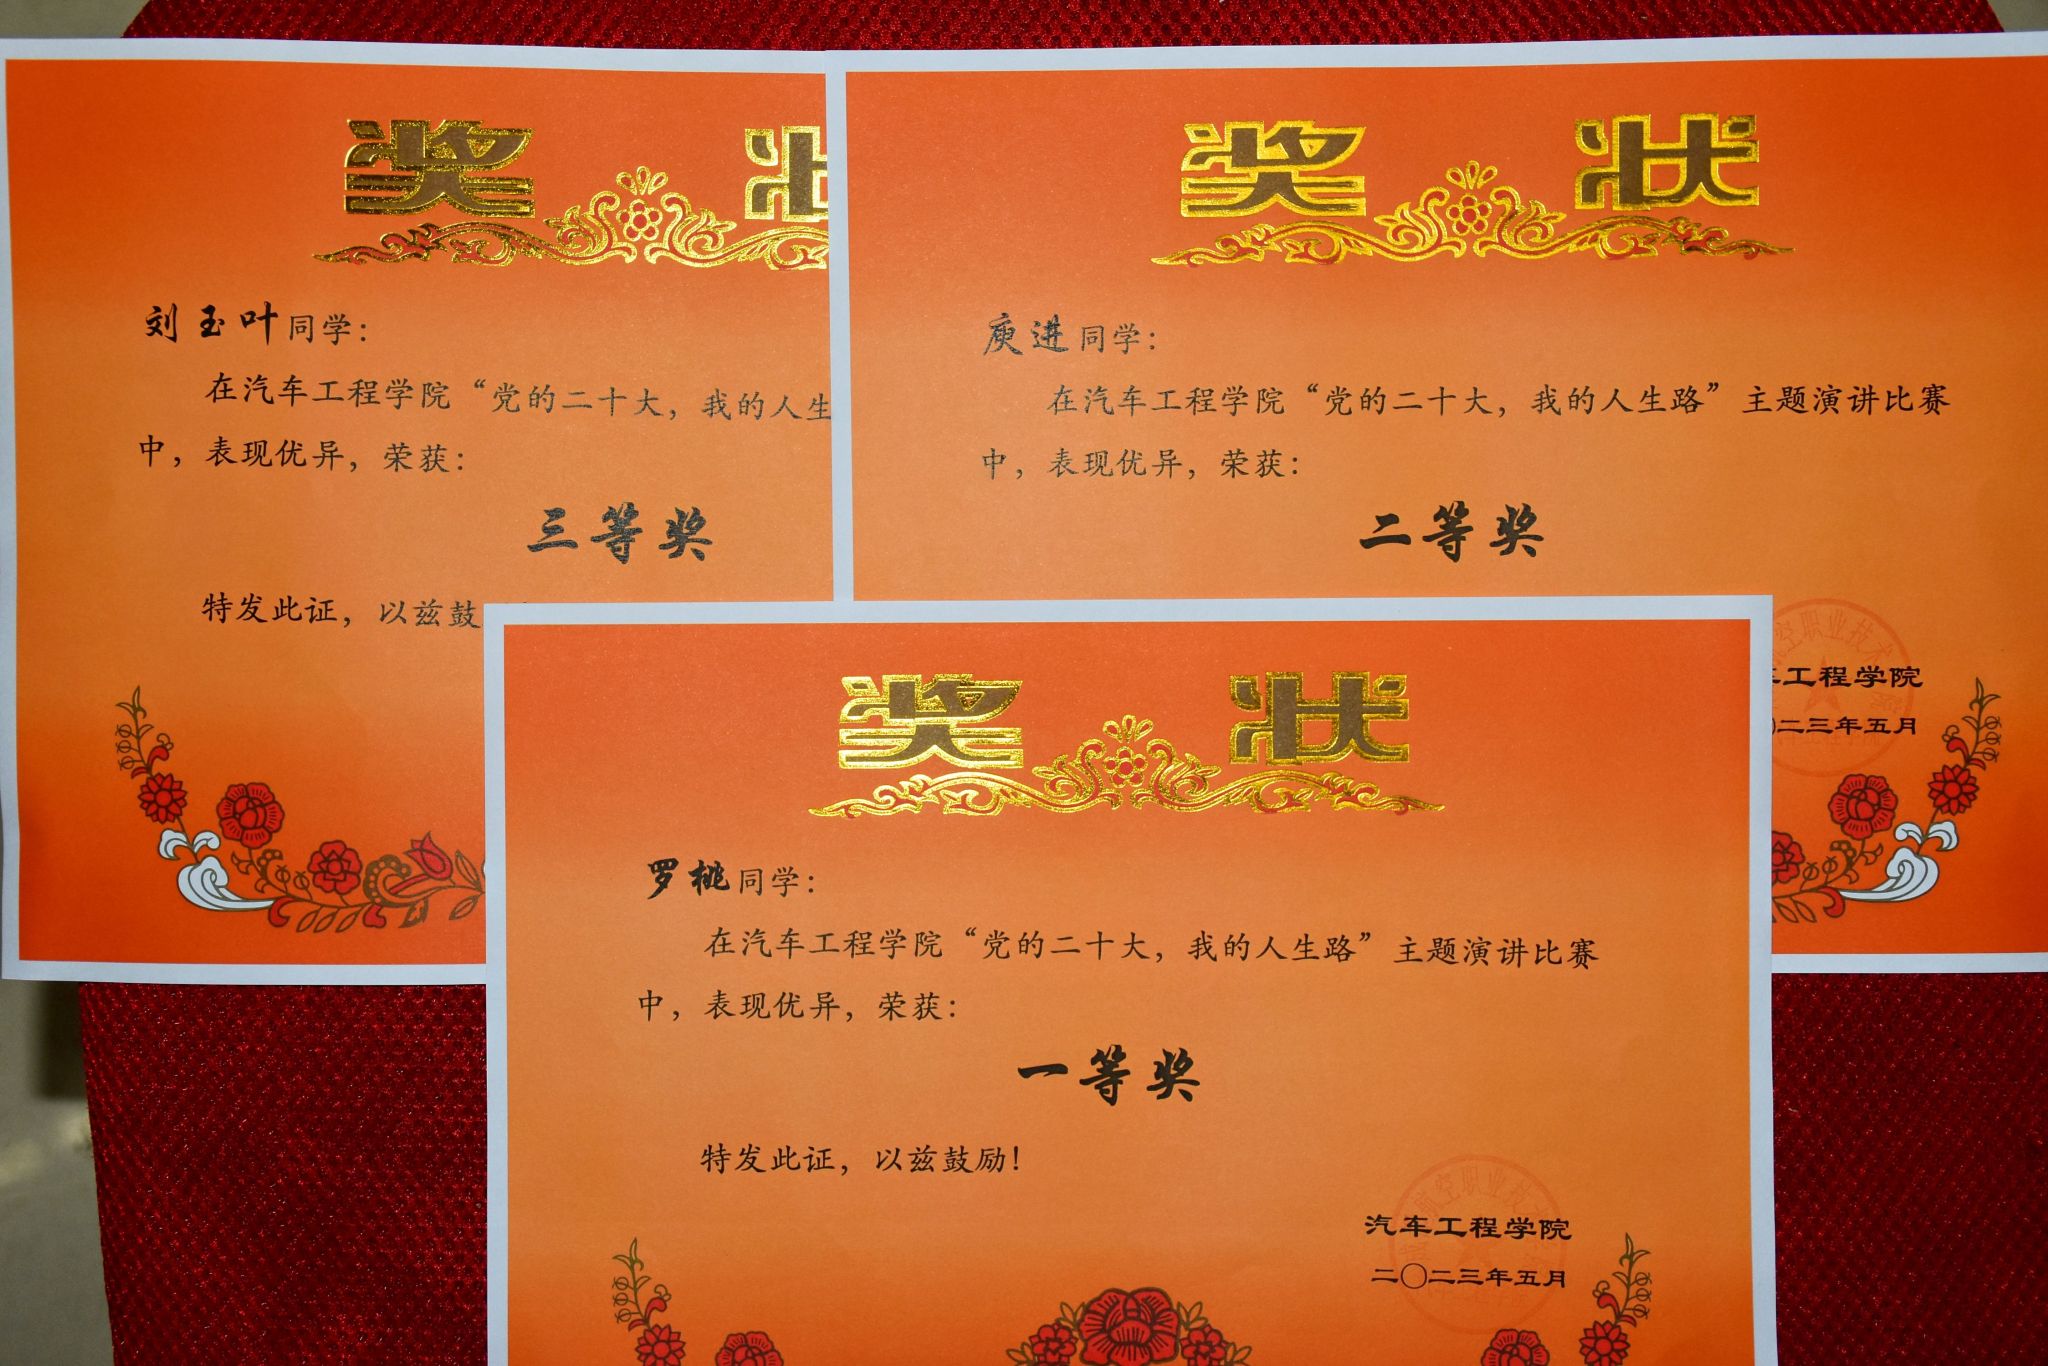 奖状
刘玉叶同学：
在汽车工程学院“党的二十大，我的人生
中，表现优异，荣获：
三等奖
特发此证，以兹鼓
奖状
庾进同学：
在汽车工程学院“党的二十大，我的人生路”主题演讲比赛
中，表现优异，荣获：
二等奖
空职业技术
工程学院
二三年五月
奖状
罗桃同学：
在汽车工程学院“党的二十大，我的人生路”主题演讲比赛
中，表现优异，荣获：
一等奖
特发此证，以兹鼓励！
航空职业技
汽车工程学院
二〇二三年五月